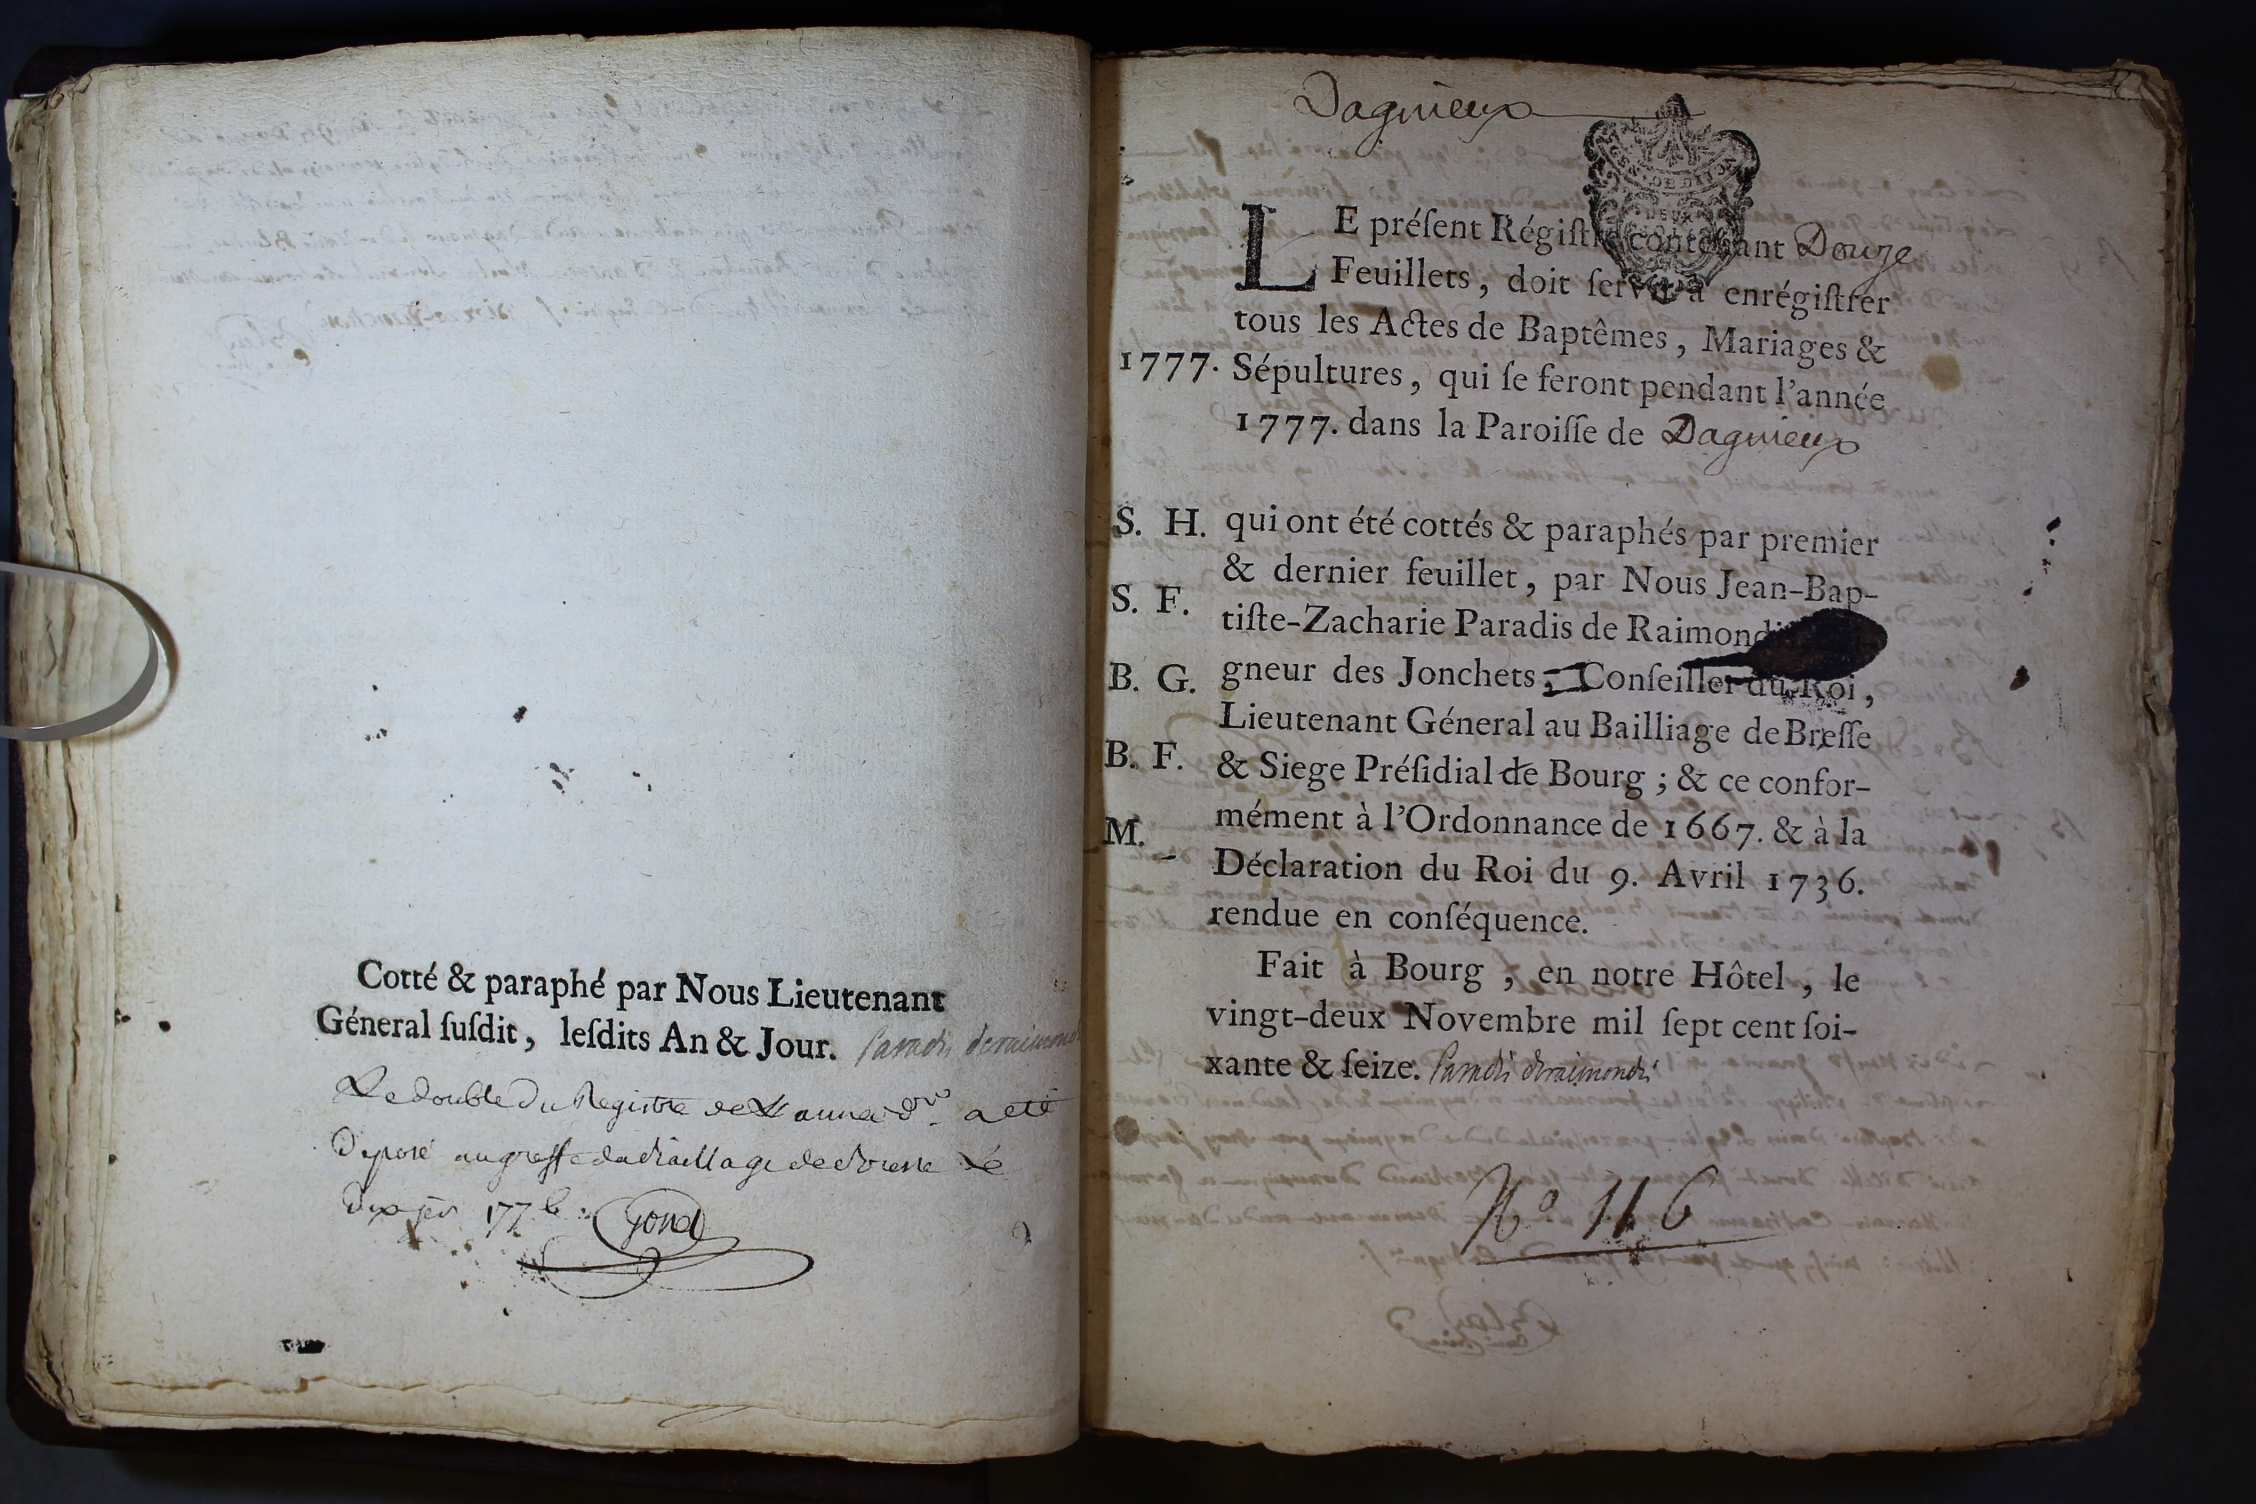 Cotté & paraphé par Nous Lieutenant
Géneral ſuſdit, leſdits An & Jour. Paradis deraimondi
Le double du Registre de L'année dre a eté
Deposé au greffe du Bailliage de Bresse Le
Dix jer 177 Gond
Dagnieux
GEN. DE DIJON
DEUX
LE préſent Régiſtre contenant Douze
Feuillets, doit ſervir à enrégiſtrer
tous les Actes de Baptêmes, Mariages &
1777. Sépultures, qui ſe feront pendant l'année
1777. dans la Paroiſſe de Dagnieux
S. H. qui ont été cottés & paraphés par premier
& dernier feuillet, par Nous Jean-Bap-
S. F. tiſte-Zacharie Paradis de Raimondi
B. G. gneur des Jonchets, Conſeiller du Roi,
Lieutenant Géneral au Bailliage de Breſſe
B. F. & Siege Préſidial de Bourg ; & ce confor-
M. mément à l'Ordonnance de 1667. & à la
Déclaration du Roi du 9. Avril 1736.
rendue en conſéquence.
Fait à Bourg, en notre Hôtel, le
vingt-deux Novembre mil ſept cent ſoi-
xante & ſeize. Paradis deraimondi
No. 116